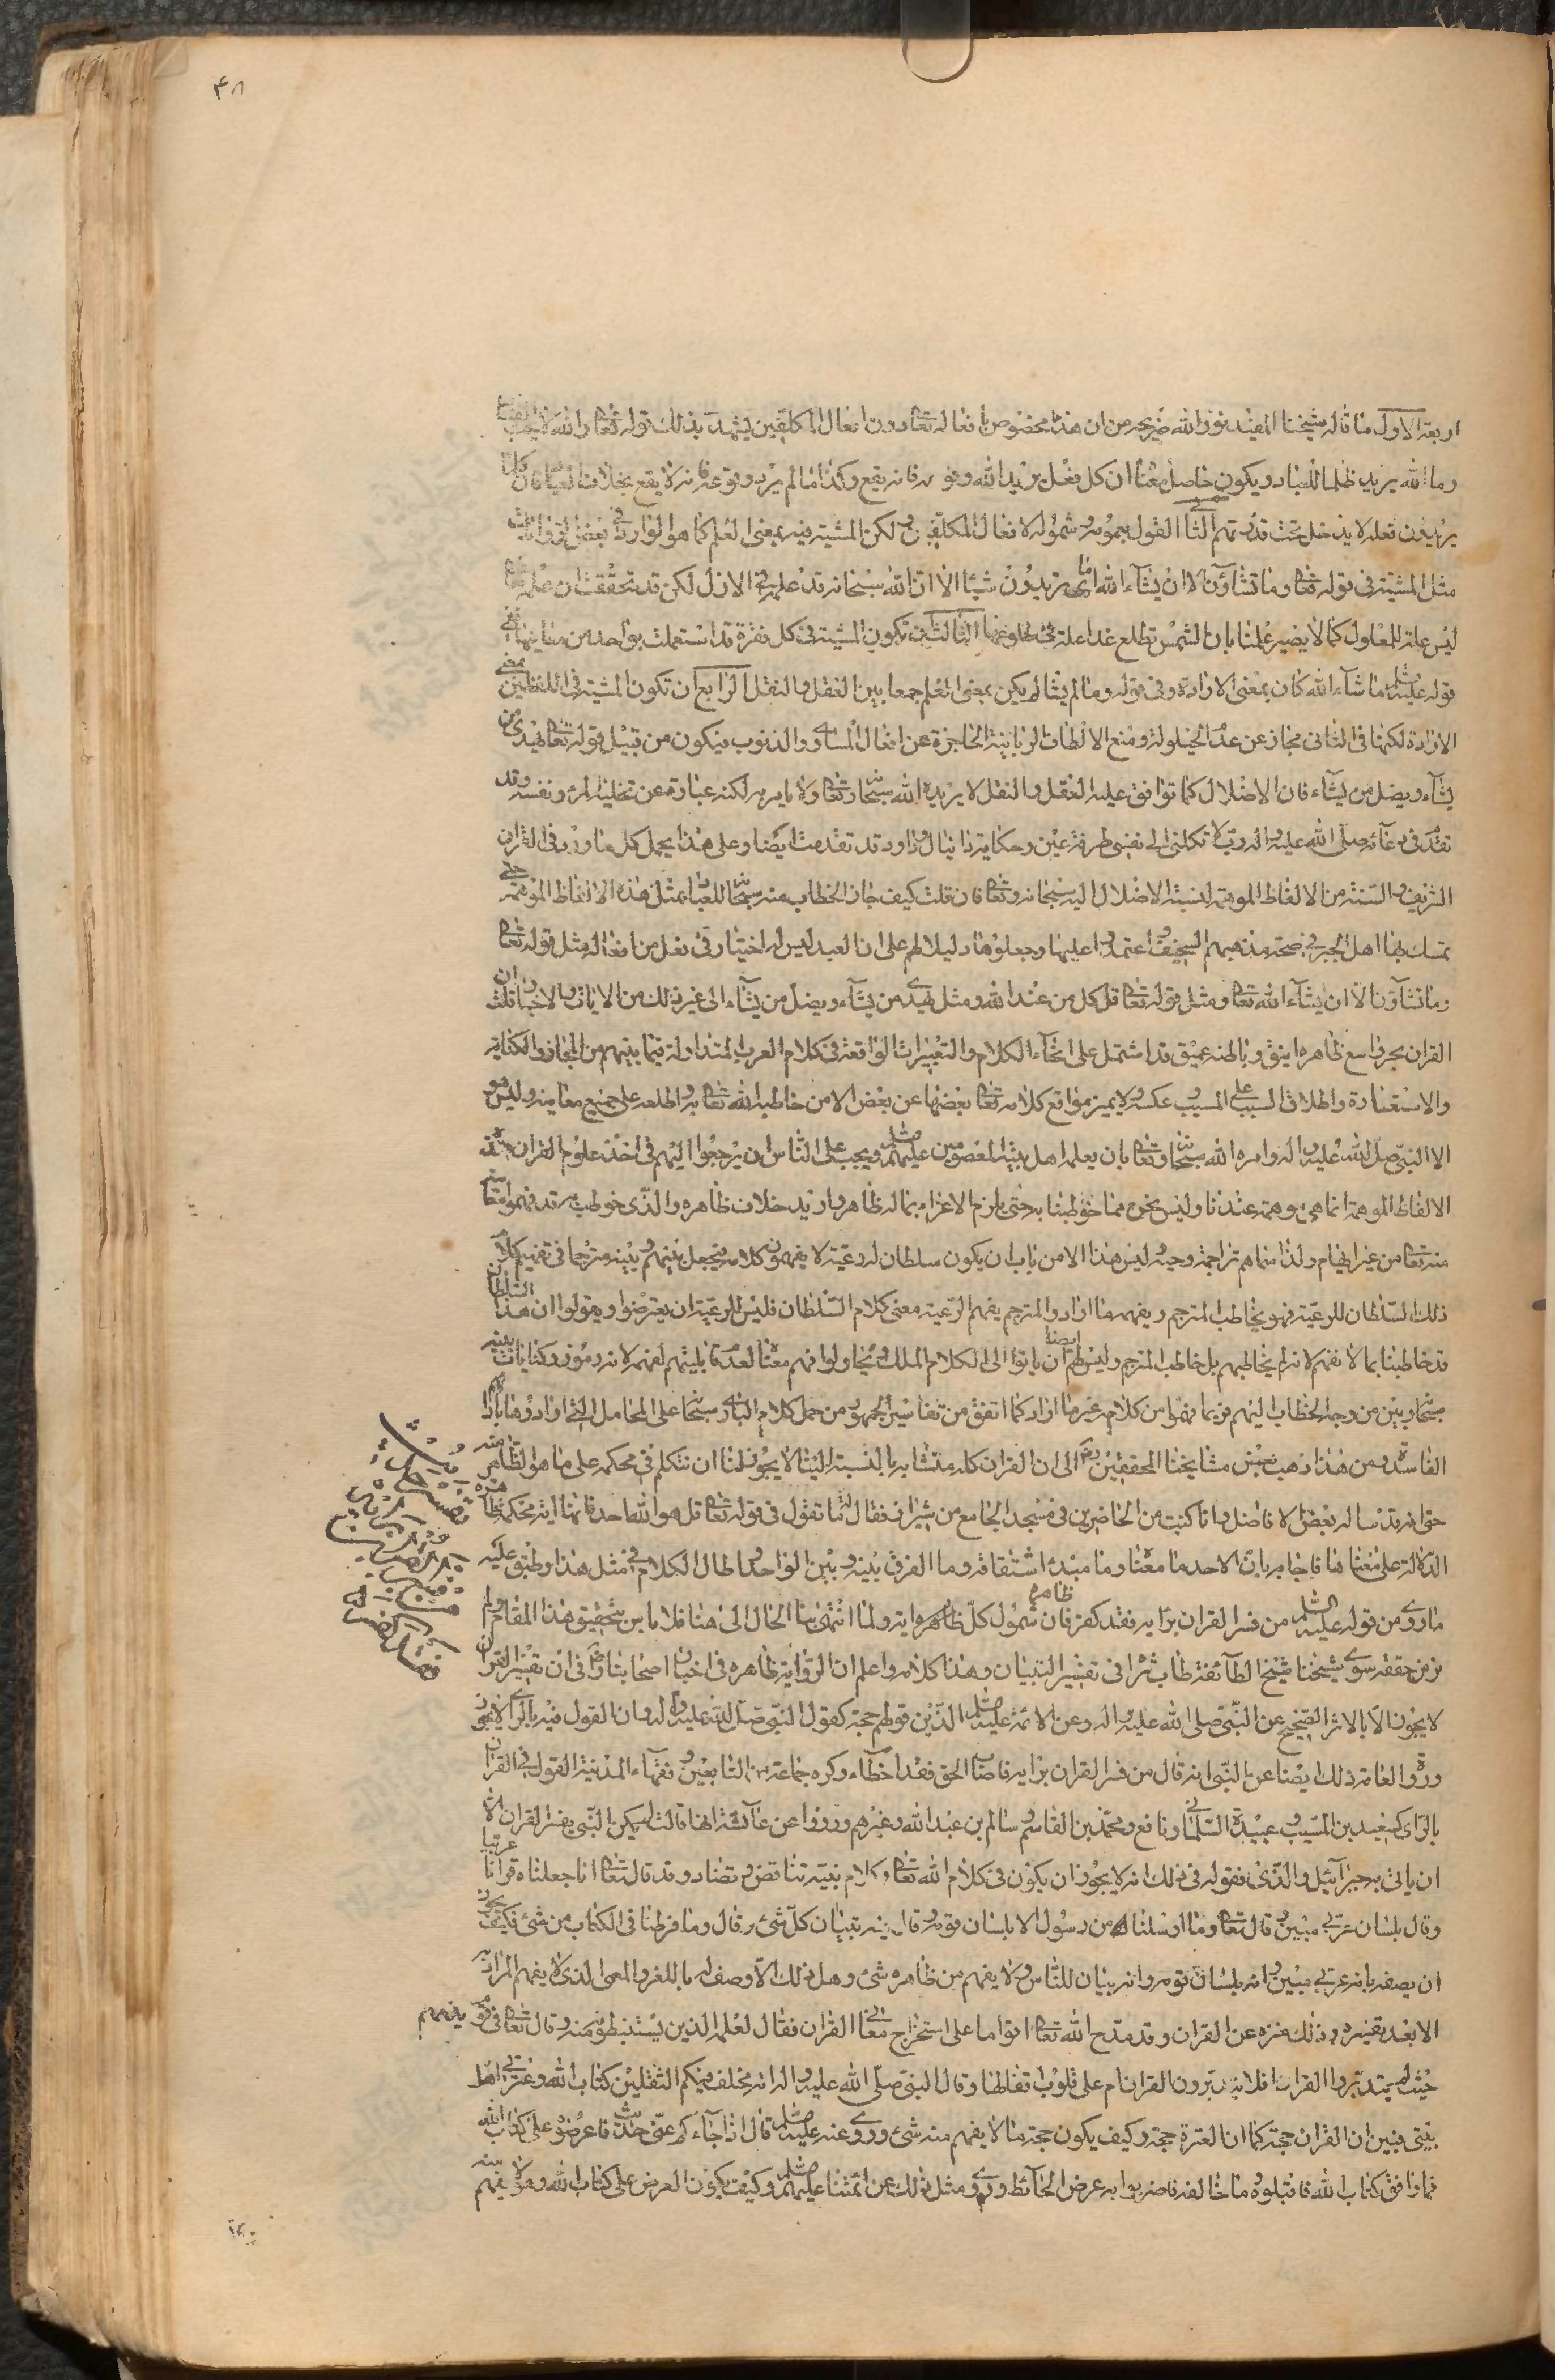 ٤٨
اربعة الاول ما قاله شيخنا المفيد نور الله ضريحه من ان هذا مخصوص بافعاله تعالى دون افعال المكلفين يشهد بذلك قوله تعالى والله لا يحب الفساد
وما الله يريد ظلما للعباد ويكون حاصل معناه ان كل فعل يريد الله وقوعه فانه يقع وكذا ما لم يرد وقوعه فانه لا يقع بخلاف العباد فان كلما
يريدون فعله لا يدخل تحت قدرتهم الثاني القول بعمومه وشموله لافعال المكلفين ولكن المشية فيه بمعنى العلم كما هو الوارد في بعض الروايات
مثل المشية في قوله تعالى وما تشاؤن الا ان يشاء الله اي ما تريدون شيئا الا ان الله سبحانه قد علمه في الازل لكن قد تحققت ان علمه تعالى
ليس علة للمعلول كما لا يصير علمنا بان الشمس تطلع غدا علة في طلوعها الثالث ان تكون المشية في كل فقرة قد استعملت بواحد من معانيها ففي
قوله عليه السلام ما شاء الله كان بمعنى الارادة وفي قوله وما لم يشأ لم يكن بمعنى العلم جمعا بين العقل والنقل الرابع ان تكون المشية في اللفظين بمعنى
الارادة لكنها في الثاني مجاز عن عدم الحيلولة ومنع الالطاف الربانية الحاجزة عن افعال المساوي والذنوب فيكون من قبيل قوله تعالى يهدي من
يشاء ويضل من يشاء فان الاضلال كما توافق عليه العقل والنقل لا يريده الله سبحانه وتعالى ولا يامر به لكنه عبارة عن تخلية المرء ونفسه وقد
تقدم في دعائه صلى الله عليه واله رب لا تكلني الى نفسي طرفة عين وحكاية دانيال وداود قد تقدمت ايضا وعلى هذا يحمل كل ما ورد في القران
الشريف والسنة من الالفاظ الموهمة لنسبة الاضلال اليه سبحانه وتعالى فان قلت كيف جاز الخطاب منه سبحانه للعباد بمثل هذه الالفاظ الموهمة حتى
تمسك بها اهل الجبر في صحة مذهبهم السخيف واعتمدوا عليها وجعلوها دليلا لهم على ان العبد ليس له اختيار في فعل من افعاله مثل قوله تعالى
وما تشاؤن الا ان يشاء الله تعالى ومثل قوله تعالى قل كل من عند الله ومثل يهدي من يشاء ويضل من يشاء الى غير ذلك من الايات والاخبار قلت ان
القران بحر واسع ظاهره انيق وباطنه عميق قد اشتمل على انحاء الكلام والتعبيرات الواقعة في كلام العرب المتداولة فيما بينهم من المجاز والكناية
والاستعارة واطلاق السبب على المسبب وعكسه ولا يميز مواقع كلامه تعالى بعضها عن بعض الا من خاطبه الله تعالى به واطلعه على جميع معانيه وليس هو
الا النبي صلى الله عليه واله وامره الله سبحانه وتعالى بان يعلمه اهل بيته المعصومين عليهم السلام ويجب على الناس ان يرجعوا اليهم في اخذ علوم القران فهذه
الالفاظ الموهمة انما هي موهمة عندنا وليس نحن ممن خوطبنا به حتى يلزم الاغراء بما له ظاهر واريد خلاف ظاهره والذي خوطب به قد فهم معانيه
منه تعالى من غير ابهام ولذا سماهم تراجمة وحيه وليس هذا الا من باب ان يكون سلطان له رعية لا يفهمون كلامه فيجعل بينهم وبينه مترجما في تفهيم كلام
ذلك السلطان للرعية فهو يخاطب المترجم ويفهمه ما اراد والمترجم يفهم الرعية معنى كلام السلطان فليس للرعية ان يعترضوا ويقولوا ان هذا السلطان
قد خاطبنا بما لا نفهم لانه لم يخاطبهم بل خاطب المترجم وليس لهم ايضا ان ياتوا الى الكلام الملك ويحاولوا فهم معناه لعدم قابليتهم لفهمه لانه رموز وكنايات بينه
سبحانه وبين من وجه الخطاب اليهم فربما فهموا من كلامه غير ما اراد كما اتفق من تفاسير الجمهور من حمل كلام الباري سبحانه على المحامل التي ارادوها بارائهم
الفاسدة ومن هذا ذهب بعض مشايخنا المحققين الى ان القران كله متشابه بالنسبة الينا لا يجوز لنا ان نتكلم في محكمه على ما هو الظاهر منه
حتى انه قد ساله بعض الافاضل وانا كنت من الحاضرين في مسجد الجامع من شيراز فقال له ما تقول في قوله تعالى قل هو الله احد فانها اية محكمة ظاهرة
الدلالة على معناها فاجابه بان الاحد ما معناه وما مبدء اشتقاقه وما الفرق بينه وبين الواحد واطال الكلام في مثل هذا وطبق عليه
ما روي من قوله عليه السلام من فسر القران برايه فقد كفر فان ظاهره شمول كل ظاهره اية ولما انتهى بنا الحال الى هنا فلا باس بتحقيق هذا المقام ولم
نر من حققه سوى شيخنا شيخ الطائفة طاب ثراه في تفسير التبيان وهذا كلامه واعلم ان الرواية ظاهره في اخبار اصحابنا في ان تفسير القران
لا يجوز الا بالاثر الصحيح عن النبي صلى الله عليه واله وعن الائمة عليهم السلام الذين قولهم حجة كقول النبي صلى الله عليه واله وان القول فيه بالراي لا يجوز
وروى العامة ذلك ايضا عن النبي انه قال من فسر القران برايه فاصاب الحق فقد اخطاء وكره جماعة من التابعين وفقهاء المدينة القول في القران
بالراي كسعيد بن المسيب وعبيدة السلماني ونافع ومحمد بن القاسم وسالم بن عبد الله وغيرهم ورووا عن عائشة انها قالت لم يكن النبي يفسر القران الا
ان ياتي به جبرائيل والذي نقوله في ذلك انه لا يجوز ان يكون في كلام الله تعالى وكلام نبيه تناقض وتضاد وقد قال تعالى انا جعلناه قرانا عربيا
وقال بلسان عربي مبين وقال تعالى وما ارسلنا من رسول الا بلسان قومه وقال فيه تبيان كل شيء وقال وما فرطنا في الكتاب من شيء فكيف يجوز
ان يصفه بانه عربي مبين وانه بلسان قومه وانه بيان للناس ولا يفهم من ظاهره شيء وهل ذلك الا وصف له باللغز والمعمى الذي لا يفهم المراد به
الا بعد تفسيره وذلك منزه عن القران وقد مدح الله تعالى اقواما على استخراج معاني القران فقال لعلمه الذين يستنبطونه منهم وقال تعالى في قوم يذمهم
حيث لم يتدبروا القران افلا يتدبرون القران ام على قلوب اقفالها وقال النبي صلى الله عليه واله اني مخلف فيكم الثقلين كتاب الله وعترتي اهل
بيتي فبين ان القران حجة كما ان العترة حجة وكيف يكون حجة ما لا يفهم منه شيء وروي عنه عليه السلام قال اذا جاءكم عني حديث فاعرضوه على كتاب الله
فما وافق كتاب الله فاقبلوه وما خالفه فاضربوا به عرض الحائط وروي مثل ذلك عن ائمتنا عليهم السلام وكيف يكون العرض على كتاب الله وهو لا يفهم منه